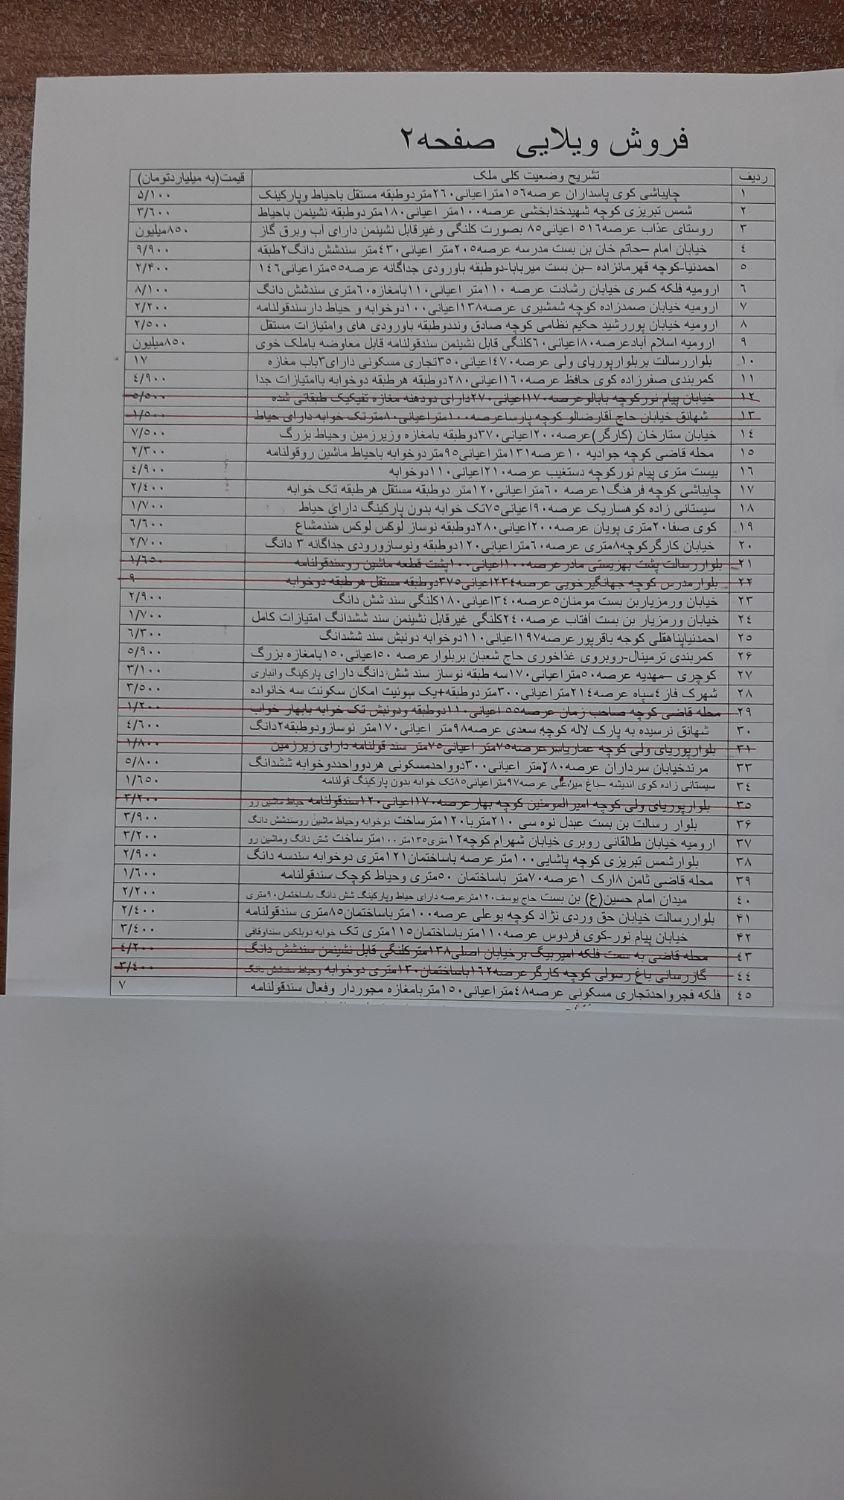 فروش ویلایی صفحه۲
ردیف تشریح وضعیت کلی ملک قیمت(به میلیاردتومان)
۱ چایباشی کوی پاسداران عرصه۱۵۶متراعیانی۲۶۰متردوطبقه مستقل باحیاط وپارکینک ۵/۱۰۰
۲ شمس تبریزی کوچه شهیدخدابخشی عرصه۱۰۰متر اعیانی۱۸۰متردوطبقه نشیمن باحیاط ۳/۶۰۰
۳ روستای عذاب عرصه۵۱۶ اعیانی۸۵ بصورت کلنگی وغیرقابل نشیمن دارای اب وبرق گاز ۸۵۰میلیون
۴ خیابان امام –حاتم خان بن بست مدرسه عرصه۲۰۵متر اعیانی۴۳۰متر سندشش دانگ۲طبقه ۹/۹۰۰
۵ احمدنیا-کوچه قهرمانزاده –بن بست میربابا-دوطبقه باورودی جداگانه عرصه۵۵متراعیانی۱۴۶ ۲/۴۰۰
۶ ارومیه فلکه کسری خیابان رشادت عرصه ۱۱۰متر اعیانی۱۱۰بامغازه۶۰متری سندشش دانگ ۸/۱۰۰
۷ ارومیه خیابان صمدزاده کوچه شمشیری عرصه۱۳۸اعیانی۱۰۰دوخوابه و حیاط دارسندقولنامه ۲/۲۰۰
۸ ارومیه خیابان پوررشید حکیم نظامی کوچه صادق وننددوطبقه باورودی های وامتیازات مستقل ۲/۵۰۰
۹ ارومیه اسلام آبادعرصه۸۰اعیانی۶۰کلنگی قابل نشیمن سندقولنامه قابل معاوضه باملک خوی ۸۵۰میلیون
۱۰ بلواررسالت بربلوارپوریای ولی عرصه۴۷۰اعیانی۳۵۰تجاری مسکونی دارای۳باب مغازه ۱۷
۱۱ کمربندی صفرزاده کوی حافظ عرصه۱۶۰اعیانی۲۸۰دوطبقه هرطبقه دوخوابه باامتیازات جدا ۴/۹۰۰
۱۲ خیابان پیام نورکوچه بابالوعرصه۱۷۰اعیانی۲۷۰دارای دودهنه مغازه تفیکیک طبقاتی شده ۵/۵۰۰
۱۳ شهانق خیابان حاج آقارضالو کوچه پارساعرصه۱۰۰متراعیانی۸۰مترتک خوابه دارای حیاط ۱/۵۰۰
۱۴ خیابان ستارخان (کارگر)عرصه۲۰۰اعیانی۳۷۰دوطبقه بامغازه وزیرزمین وحیاط بزرگ ۷/۵۰۰
۱۵ محله قاضی کوچه جوادیه ۱۰عرصه۱۳۱متراعیانی۹۵متردوخوابه باحیاط ماشین روقولنامه ۲/۳۰۰
۱۶ بیست متری پیام نورکوچه دستغیب عرصه۲۱۰اعیانی۱۱۰دوخوابه ۴/۹۰۰
۱۷ چایباشی کوچه فرهنگ۱عرصه ۶۰متراعیانی۱۲۰متر دوطبقه مستقل هرطبقه تک خوابه ۲/۴۰۰
۱۸ سیستانی زاده کوهساریک عرصه۹۰اعیانی۷۵تک خوابه بدون پارکینگ دارای حیاط ۱/۷۰۰
۱۹ کوی صفا۲۰متری پویان عرصه۲۰۰اعیانی۲۸۰دوطبقه نوساز لوکس لوکس سندمشاع ۶/۶۰۰
۲۰ خیابان کارگرکوچه۸متری عرصه۶۰متراعیانی۱۲۰دوطبقه ونوسازورودی جداگانه ۳ دانگ ۲/۷۰۰
۲۱ بلواررسالت پشت بهزیستی مادرعرصه۱۰۰اعیانی۱۰۰پشت قطعه ماشین روسندقولنامه ۱/۶۵۰
۲۲ بلوارمدرس کوچه جهانگیرخویی عرصه۲۳۴اعیانی۳۷۵دوطبقه مستقل هرطبقه دوخوابه ۹
۲۳ خیابان ورمزیاربن بست مومنان۵عرصه۳۴۰اعیانی۱۸۰کلنگی سند شش دانگ ۲/۹۰۰
۲۴ خیابان ورمزیار بن بست آفتاب عرصه۲۴۰کلنگی غیرقابل نشیمن سند ششدانگ امتیازات کامل ۱/۷۰۰
۲۵ احمدنیاپناهقلی کوچه باقرپورعرصه۱۹۷اعیانی۱۱۰دوخوابه دونبش سند ششدانگ ۶/۳۰۰
۲۶ کمربندی ترمینال-روبروی غذاخوری حاج شعبان بربلوارعرصه ۵۰اعیانی۱۵۰بامغازه بزرگ ۵/۹۰۰
۲۷ کوچری –مهدیه عرصه۵۰متراعیانی۱۷۰سه طبقه نوساز سند شش دانگ دارای پارکینگ وانباری ۳/۱۰۰
۲۸ شهرک فاز۴سپاه عرصه۲۱۴متراعیانی۳۰۰متردوطبقه+یک سوئیت امکان سکونت سه خانواده ۳/۵۰۰
۲۹ محله قاضی کوچه صاحب زمان عرصه۵۵ اعیانی۱۱۰دوطبقه ودونبش تک خوابه بابهار خواب ۱/۲۰۰
۳۰ شهانق نرسیده به پارک لاله کوچه سعدی عرصه۹۸متر اعیانی۱۷۰متر نوسازودوطبقه۲دانگ ۴/۶۰۰
۳۱ بلوارپوریای ولی کوچه عماریاسرعرصه۷۵متر اعیانی۷۵متر سند قولنامه دارای زیرزمین ۱/۸۰۰
۳۳ مرندخیابان سرداران عرصه۷۸۰متر اعیانی۳۰۰دوواحدمسکونی هردوواحددوخوابه ششدانگ ۵/۸۰۰
۳۴ سیستانی زاده کوی اندیشه –باغ میرعلی عرصه۹۷متراعیانی۸۵تک خوابه بدون پارکینگ قولنامه ۱/۶۵۰
۳۵ بلوارپوریای ولی کوچه امیرالمومنین کوچه بهارعرصه۱۷۰اعیانی۱۲۰سندقولنامه حیاط ماشین رو ۳/۲۰۰
۳۶ بلوار رسالت بن بست عبدل نوه سی ۲۱۰متربا۱۲۰مترساخت دوخوابه وحیاط ماشین روسندشش دانگ ۳/۹۰۰
۳۷ ارومیه خیابان طالقانی روبری خیابان شهرام کوچه۱۲متری۱۳۵متر۱۰۰مترساخت شش دانگ وماشین رو ۳/۲۰۰
۳۸ بلوارشمس تبریزی کوچه پاشایی۱۰۰مترعرصه باساختمان۱۲۱متری دوخوابه سندسه دانگ ۲/۹۰۰
۳۹ محله قاضی ثامن ۸ارک ۱عرصه۷۰متر باساختمان ۵۰متری وحیاط کوچک سندقولنامه ۱/۶۰۰
۴۰ میدان امام حسین(ع) بن بست حاج یوسف۱۲۰مترعرصه دارای حیاط وپارکینگ شش دانگ باساختمان۹۰متری ۲/۲۰۰
۴۱ بلواررسالت خیابان حق وردی نژاد کوچه بوعلی عرصه۱۰۰مترباساختمان۸۵متری سندقولنامه ۲/۴۰۰
۴۲ خیابان پیام نور-کوی فردوس عرصه۱۱۰مترباساختمان۱۱۵متری تک خوابه دوبلکس سنداوقافی ۳/۴۰۰
۴۳ محله قاضی به سمت فلکه امیربیگ برخیابان اصلی۱۳۸مترکلنگی قابل نشیمن سندشش دانگ ۴/۲۰۰
۴۴ گازرسانی باغ رسولی کوچه کارگرعرصه۱۶۲باساختمان۱۳۰متری دوخوابه وحیاط سندشش دانگ ۳/۴۰۰
۴۵ فلکه فجرواحدتجاری مسکونی عرصه۴۸متراعیانی۱۵۰متربامغازه مجوردار وفعال سندقولنامه ۷